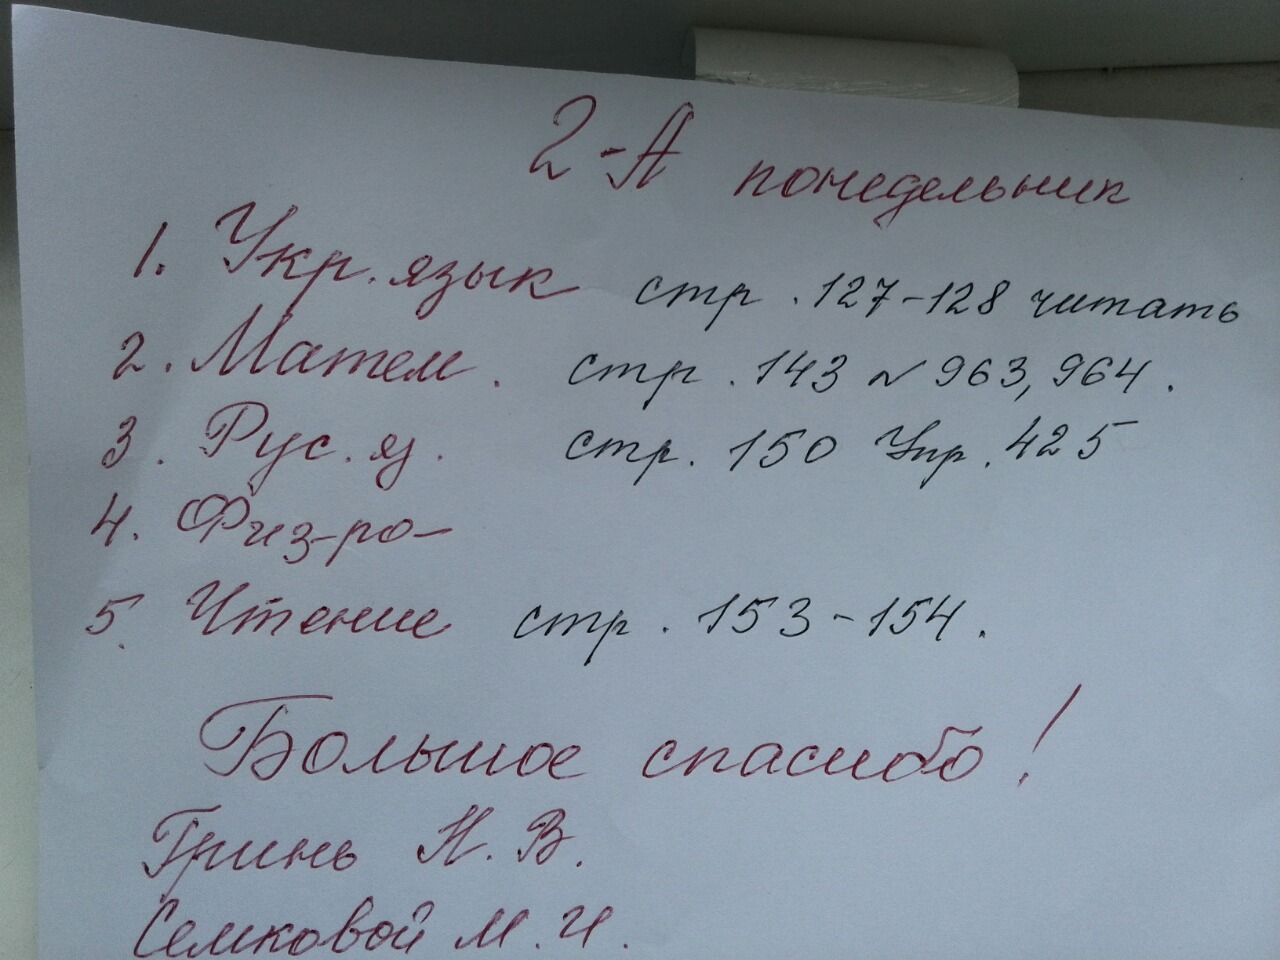 2-А понедельник
1. Укр. язык стр. 127-128 читать
2. Матем. стр. 143 № 963, 964.
3. Рус. яз. стр. 150 Упр. 425
4. Физ-ра
5. Чтение стр. 153-154.
Большое спасибо!
Гринь Н. В.
Семковой М. И.